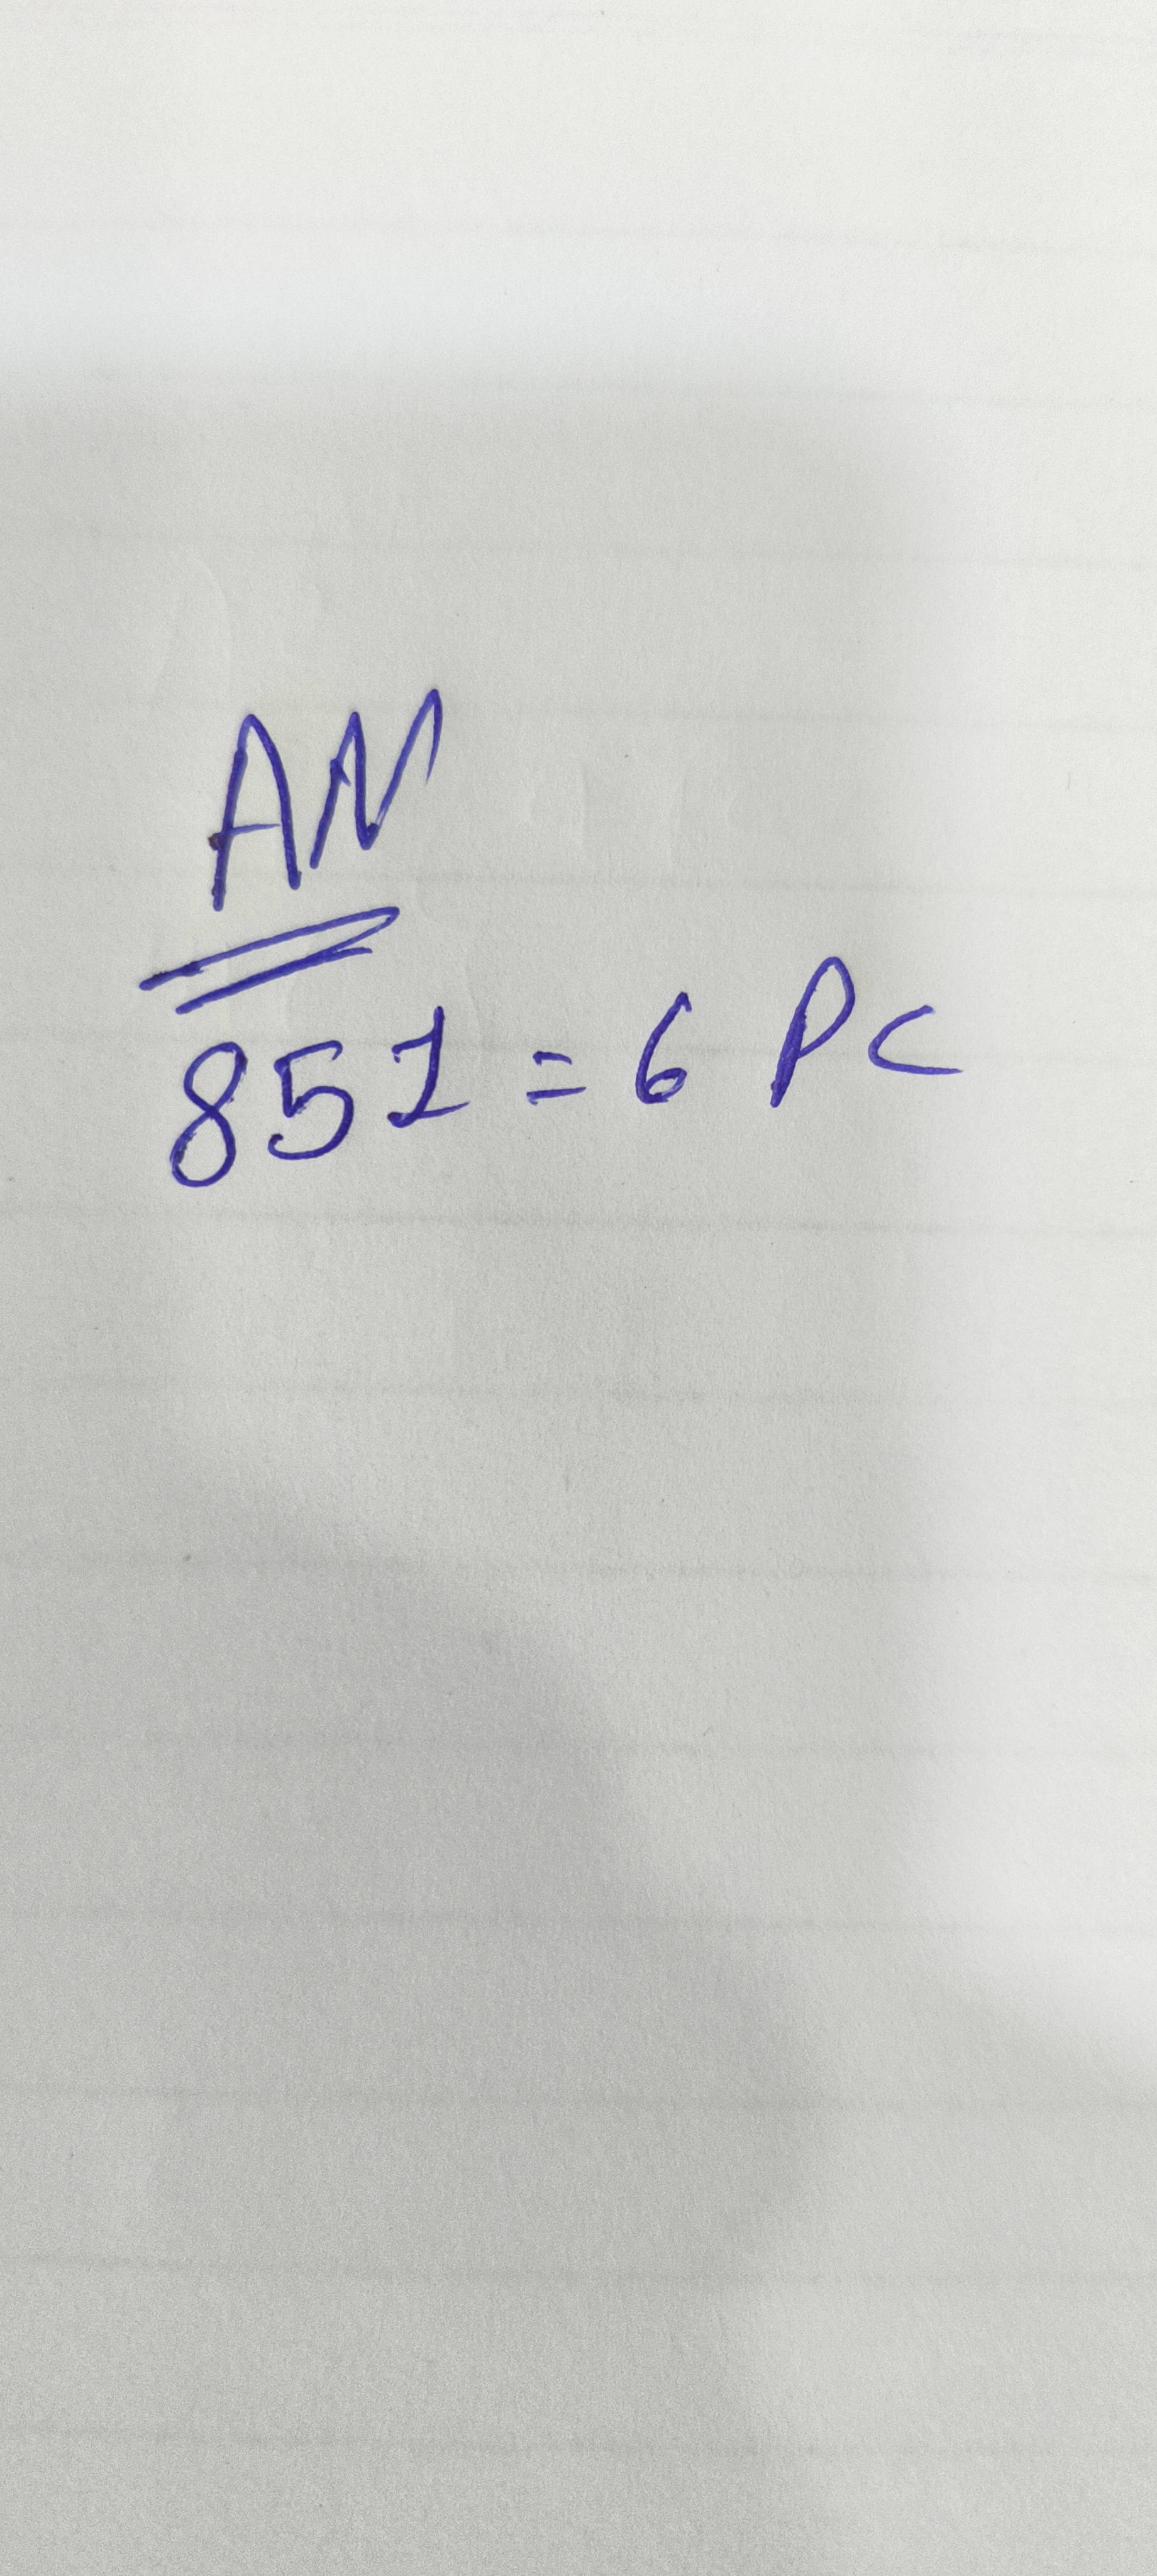 AN
851 = 6 PC